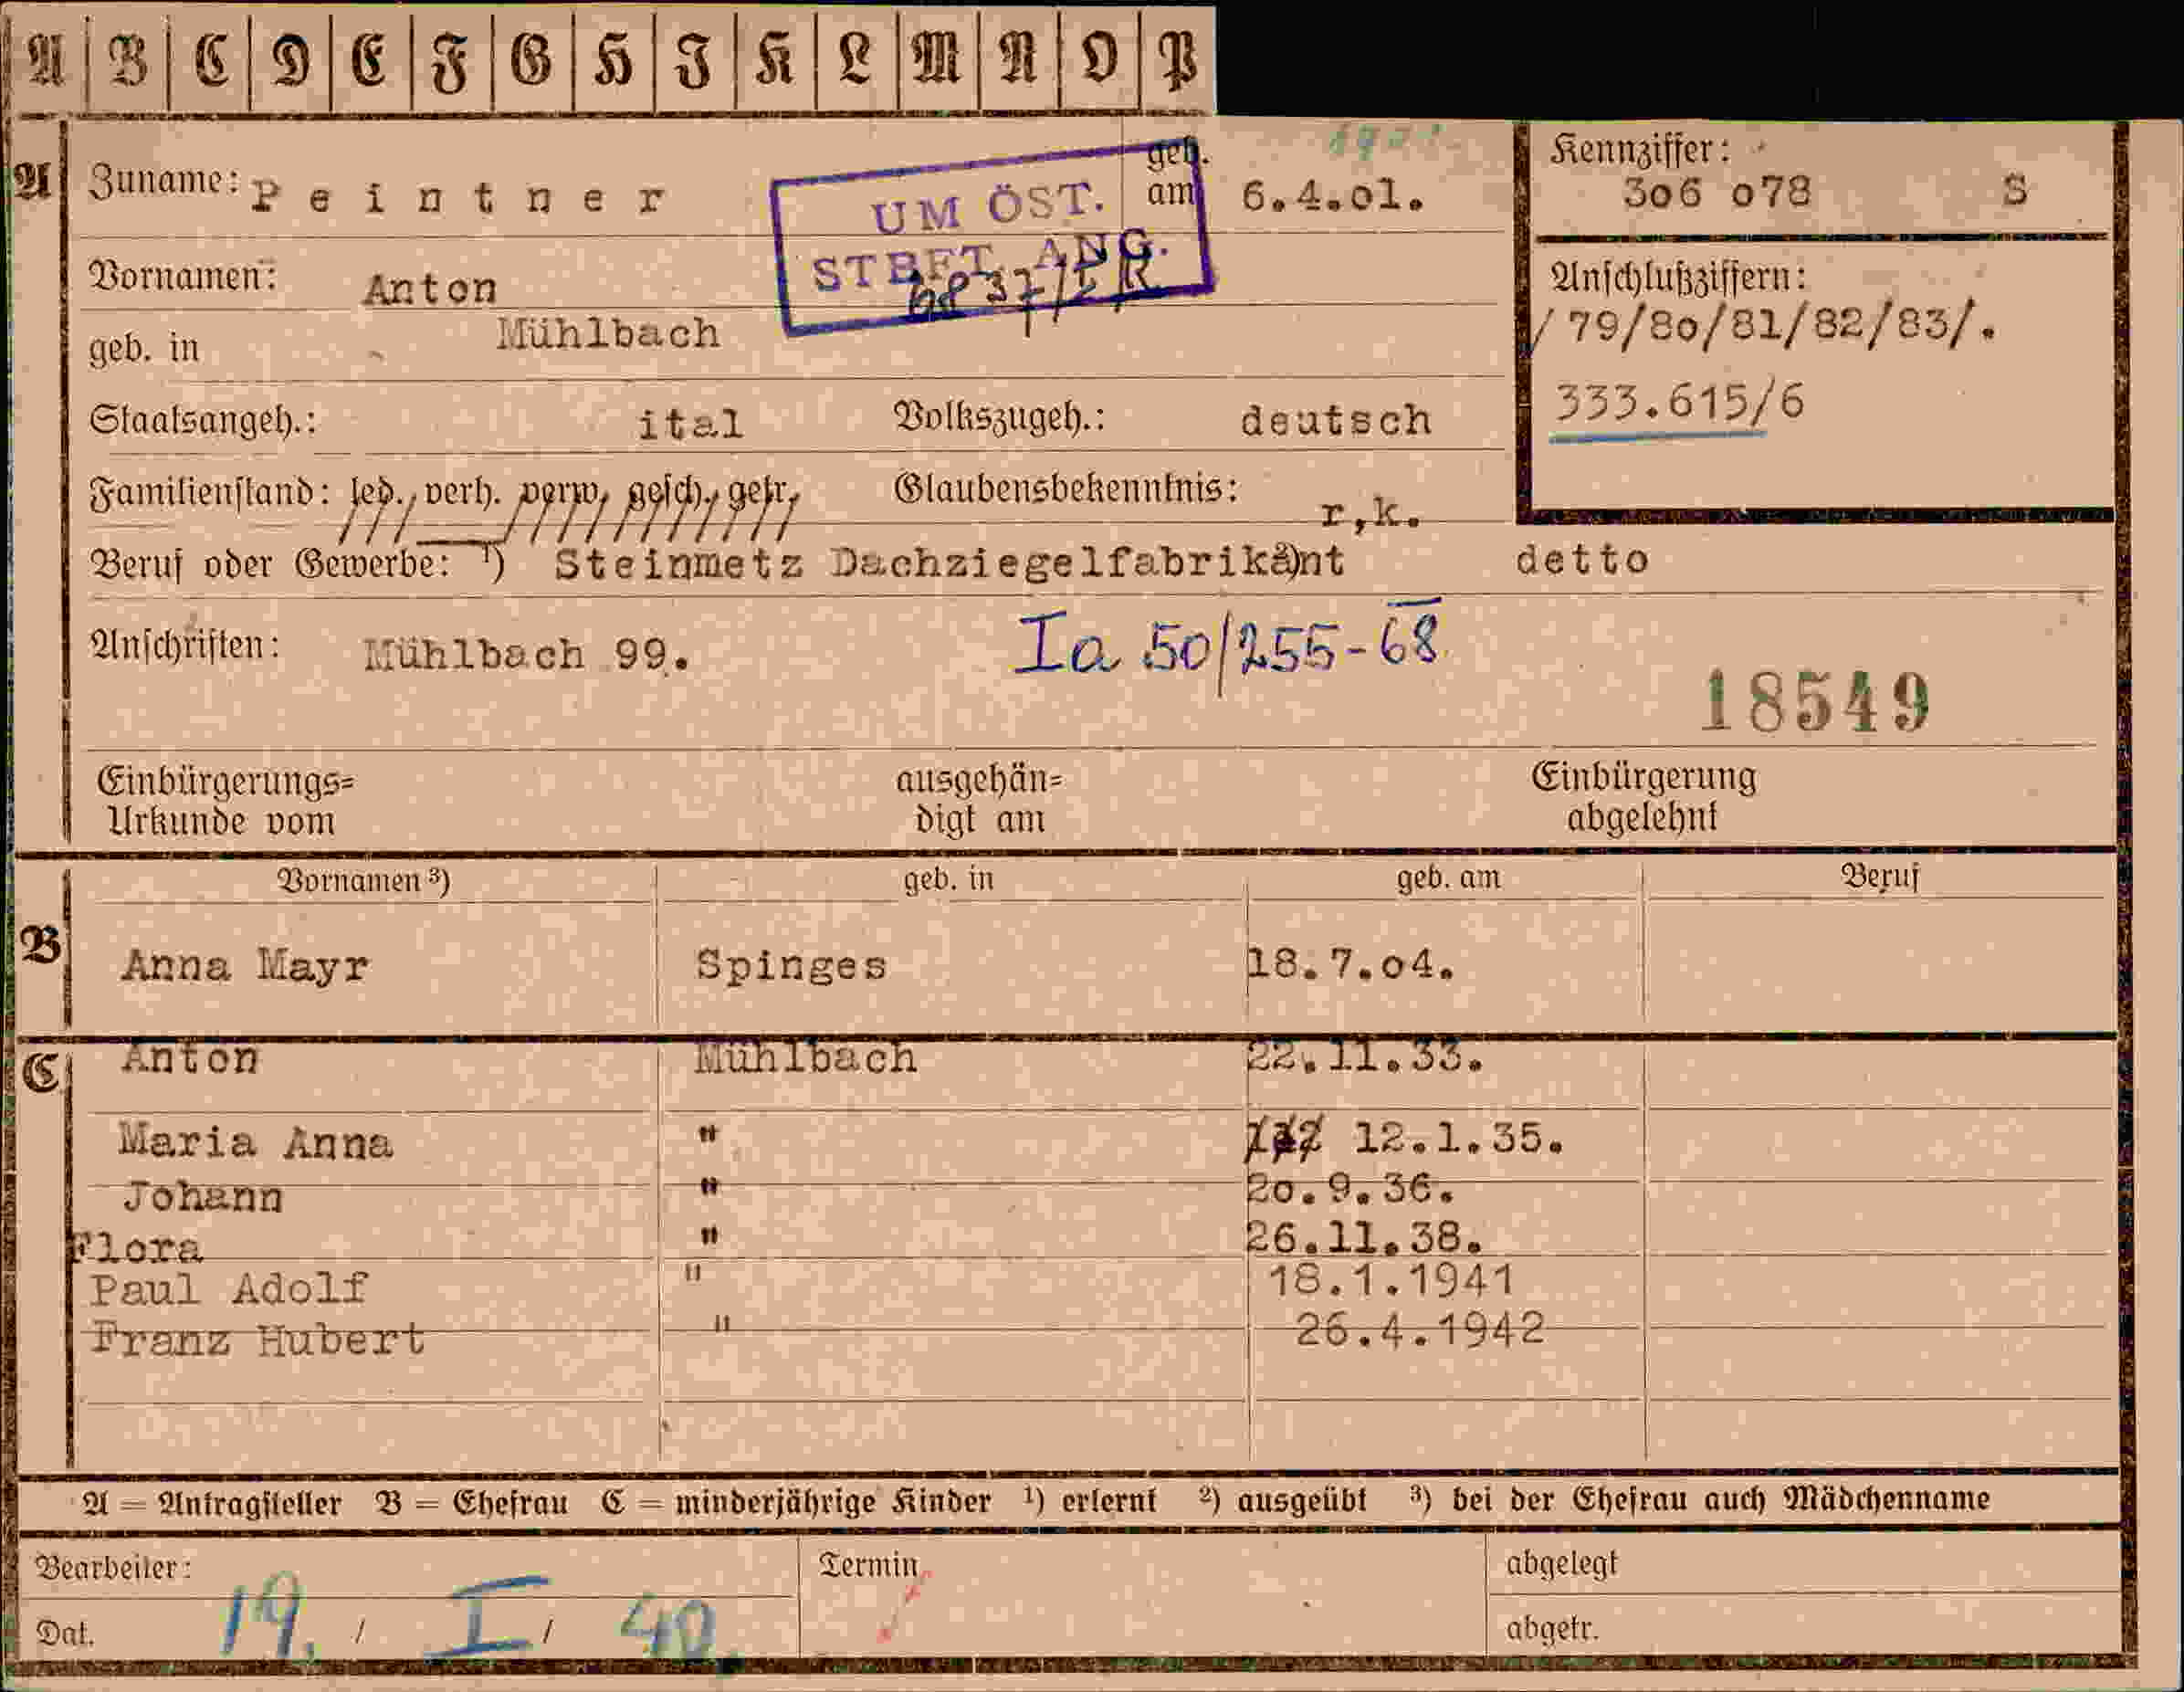 A B C D E F G H I K L M N O P
A Zuname: Peintner geb. am 6.4.01.
UM ÖST.
STBFT. ANG.
Kennziffer:
306 078 S
Vornamen: Anton
geb. in Mühlbach
Anschlußziffern:
/79/80/81/82/83/.
333.615/6
Staatsangeh.: ital Volkszugeh.: deutsch
Familienstand: led., verh. verw, gesch., getr, Glaubensbekenntnis: r,k.
Beruf oder Gewerbe: ¹) Steinmetz Dachziegelfabrikant detto
Anschriften: Mühlbach 99. Ia 50/255-68
18549
Einbürgerungs= ausgehän= Einbürgerung
Urkunde vom digt am abgelehnt
Vornamen ³) geb. in geb. am Beruf
B Anna Mayr Spinges 18.7.04.
C Anton Mühlbach 22.11.33.
Maria Anna " 12.1.35.
Johann " 20.9.36.
Flora " 26.11.38.
Paul Adolf " 18.1.1941
Franz Hubert " 26.4.1942
A = Antragsteller B = Ehefrau C = minderjährige Kinder ¹) erlernt ²) ausgeübt ³) bei der Ehefrau auch Mädchenname
Bearbeiter: Termin abgelegt
Dat. 19. / I / 40. abgetr.